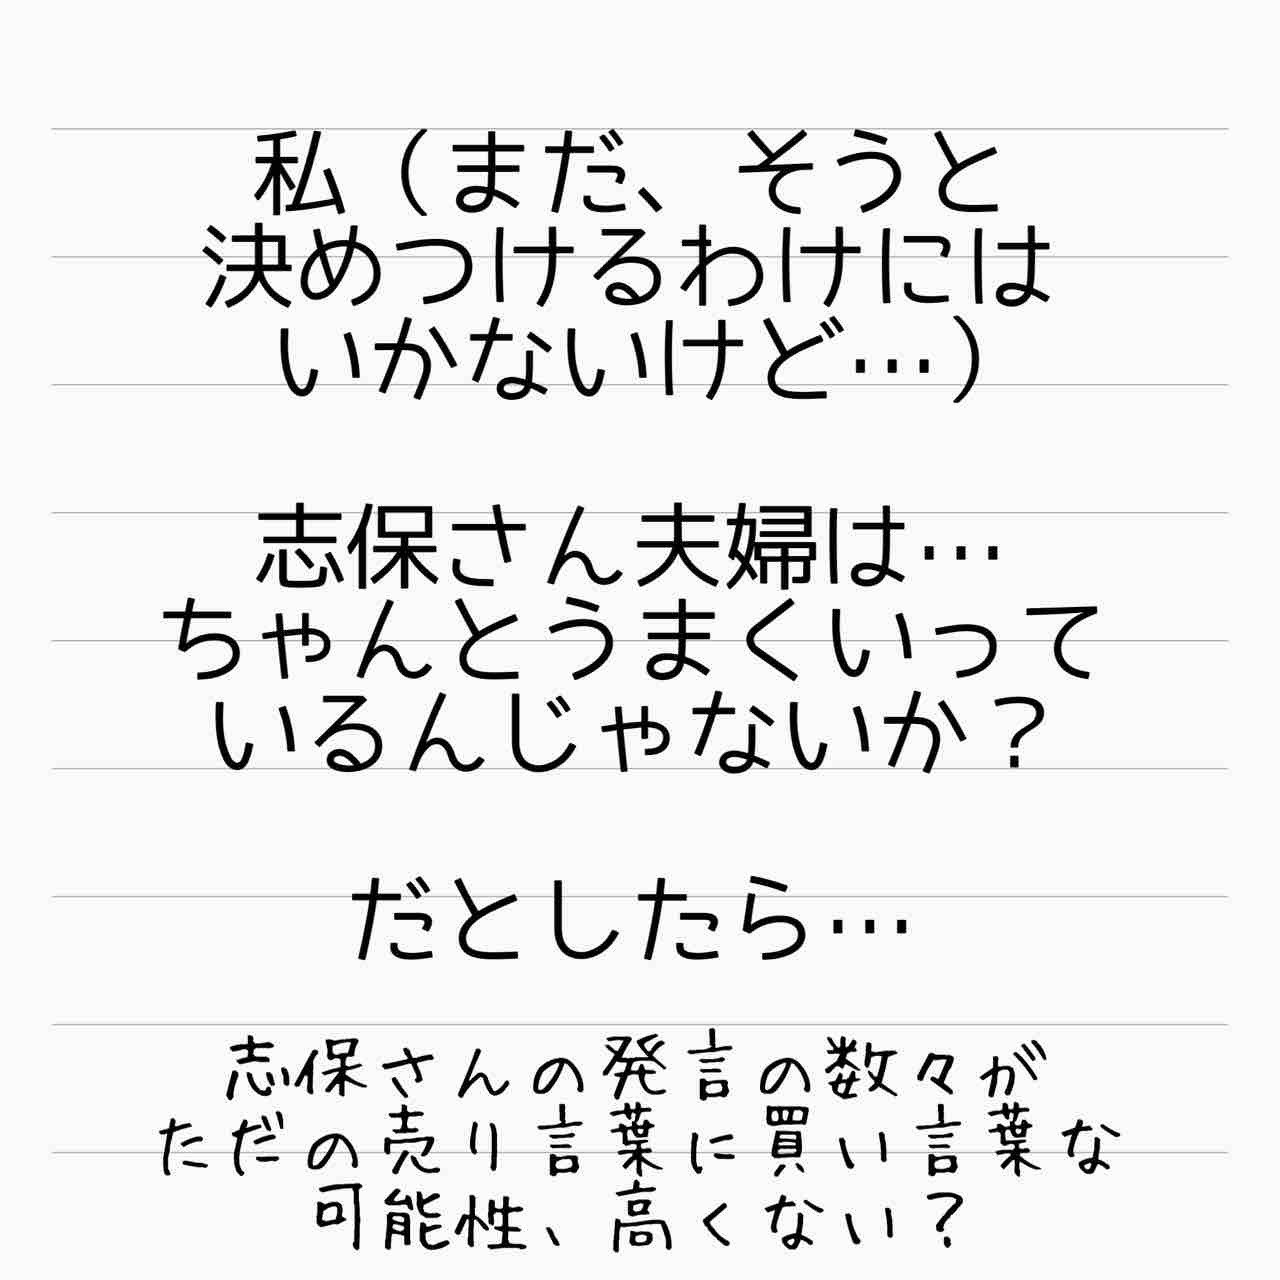 私（まだ、そうと
決めつけるわけには
いかないけど…）
志保さん夫婦は…
ちゃんとうまくいって
いるんじゃないか？
だとしたら…
志保さんの発言の数々が
ただの売り言葉に買い言葉な
可能性、高くない？